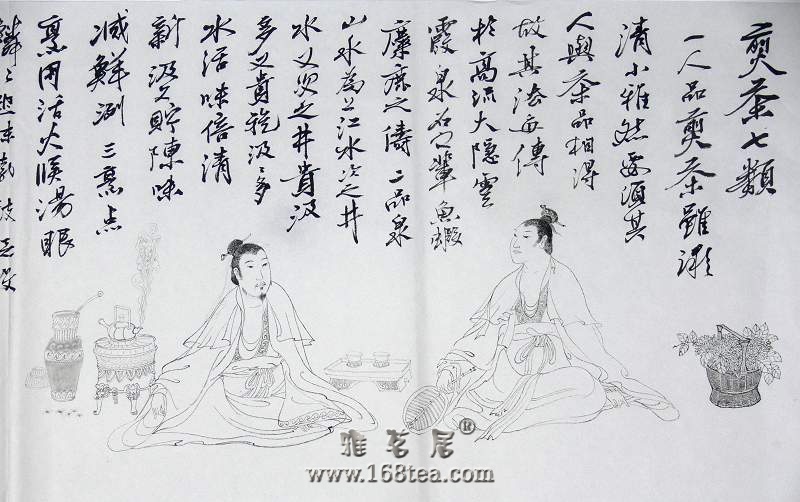 煎茶七類
一人品煎茶雖凝
清小雅然要須其
人與茶品相得
故其法每傳
於高流大隱雲
霞泉石之輩魚蝦
麋鹿之儔二品泉
山水為上江水次之井
水又次之井貴汲
多又貴旋汲多
水活味倍清
新汲久貯陳味
減鮮洌三烹点
烹用活火候湯眼
雅茗居®
www.168tea.com